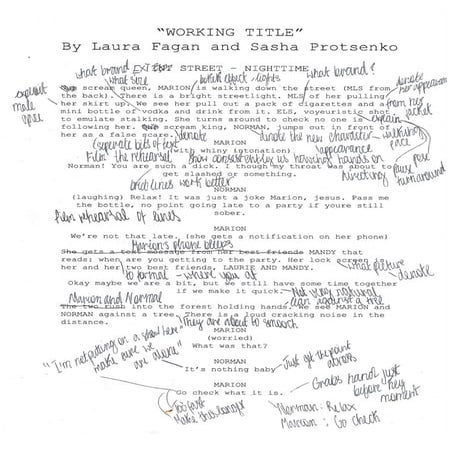 "WORKING TITLE"
By Laura Fagan and Sasha Protsenko
what brand
what size
british effect - lights
what brand?
EXT STREET - NIGHTTIME.
donate
her appearance
explicit
male
gaze
scream queen, MARION is walking down the street (MLS from
the back). There is a bright streetlight. MLS of her pulling
from her
jacket
her skirt up. We see her pull out a pack of cigarettes and a
mini bottle of vodka and drink from it. ELS, voyeuristic shot
to emulate stalking. She turns around to check no one is
explain
following her. scream king, NORMAN, jumps out in front of
walking
pace
her as a false scare.
donate
donate the new character
appearance
(separate bits of text
MARION
(with whiny intonation)
Film the rehearsal
show
hands on
directing
pause
turnaround
Norman! You are such a dick. I though my throat was about to
get slashed or something.
brief lines work better
NORMAN
(laughing) Relax! It was just a joke Marion, jesus. Pass me
the bottle, no point going late to a party if youre still
sober.
film rehearsal of lines
MARION
We're not late. (she gets a notification on her phone)
Marion's phone beeps
She gets a text message from her best friends MANDY that
reads: when are you getting to the party. Her lock screen is
her and her two best friends, LAURIE AND MANDY.
what picture
donate
to formal - where you at
Okay maybe we are a bit, but we still have some time together
if we make it quick.
Not very natural
lean against a tree
Marion and Normal
The two rush into the forest holding hands. We see MARION and
NORMAN against a tree. There is a loud cracking noise in the
distance.
They are about to smooch
MARION
(worried)
What was that?
"I'm not putting on a show here"
make sure we
are alone"
NORMAN
It's nothing baby
Just get the point
across
MARION
Go check what it is.
Grabs hand just
before key
moment
Too fast
Make this longer
Norman: Relax
Marion: Go check